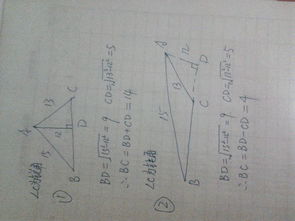 ∠C为锐角
①
A
15
13
12
B
D
C
BD=√15²-12²=9 CD=√13²-12²=5
∴BC=BD+CD=14
∠C为钝角
②
A
15
13
12
B
C
D
BD=√15²-12²=9 CD=√13²-12²=5
∴BC=BD-CD=4